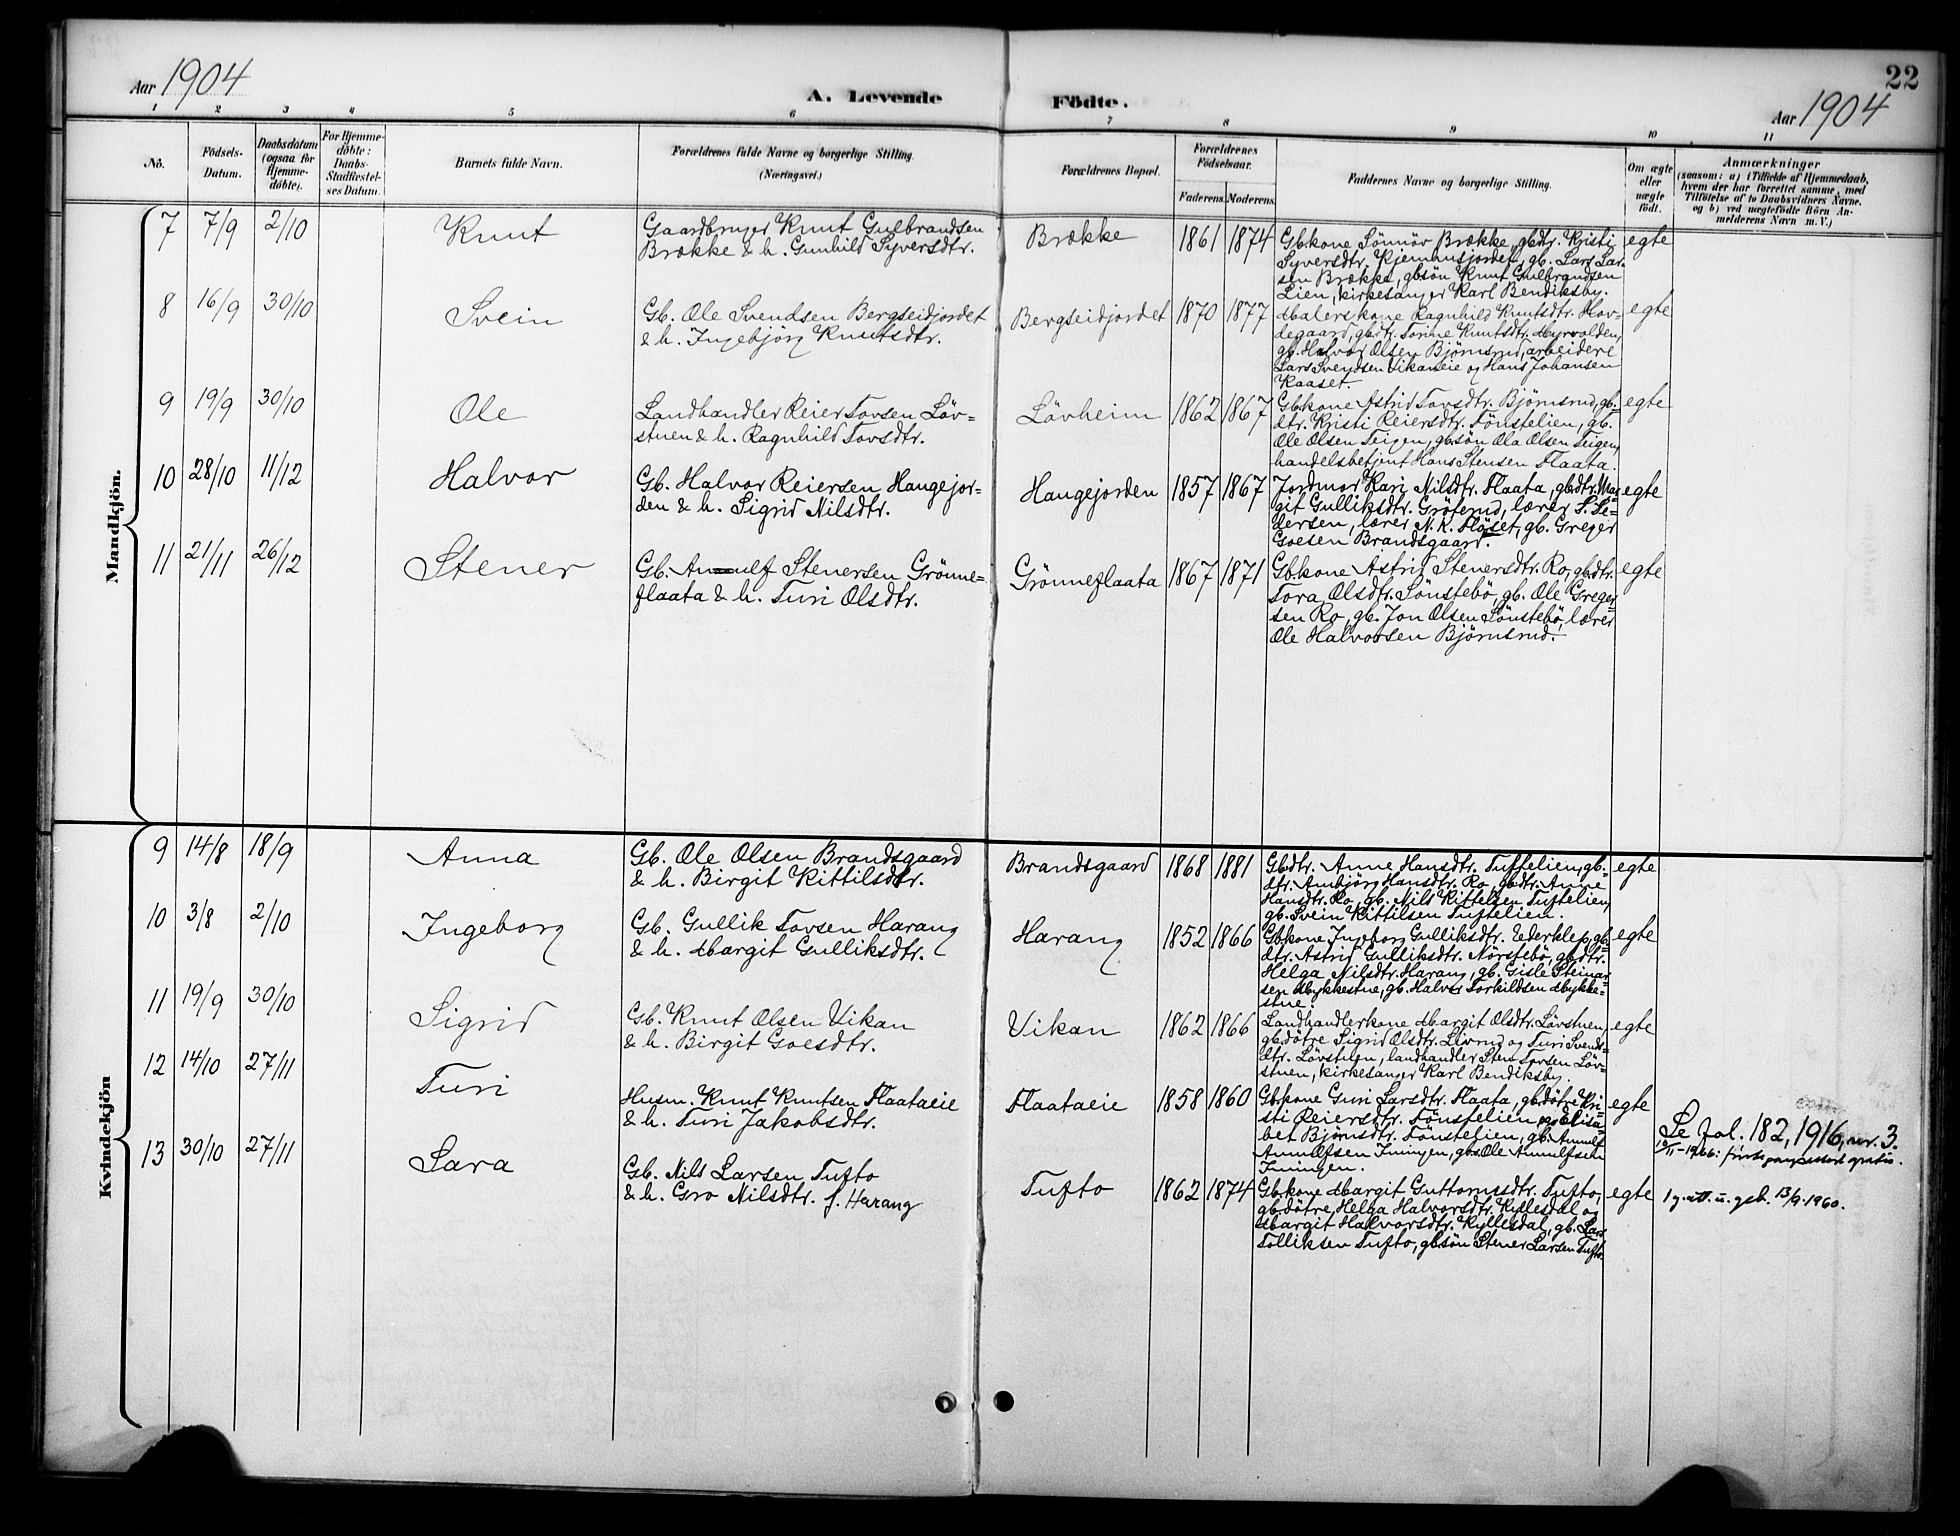 22
Aar 1904
A. Levende Födte.
Aar 1904
1 2 3 4 5 6 7 8 9 10 11
No.
Födsels-
Datum.
Daabsdatum
(ogsaa for
Hjemme-
döbte).
For Hjemme-
döbte:
Daabs-
Stadfæstel-
ses Datum.
Barnets fulde Navn.
Forældrenes fulde Navne og borgerlige Stilling.
(Næringsvei.)
Forældrenes Bopæl.
Forældrenes
Födselsaar.
Faderens. Moderens.
Faddernes Navne og borgerlige Stilling.
Om ægte
eller
uægte
födt.
Anmærkninger
(saasom: a) i Tilfælde af Hjemmedaab,
hvem der har forrettet samme, med
Tilföielse af to Daabsvidners Navne.
og b) ved uægtefödte Börn An-
melderens Navn m. V.)
Mandkjön.
7 7/9 2/10 Knut
Gaardbruger Knut Gulbrandsen
Brække & h. Gunhild Syversdtr.
Brække 1861 1874
Gbkone Sönnöv Brække, gbdtr. Kristi
Syversdtr. Kjemhusjordet, gb. Lars Lar-
sen Brække, gbsön Knut Gulbrandsen
Lien, kirkesanger Karl Bendiksby.
egte
8 16/9 30/10 Svein
Gb. Ole Svendsen Bergseidjordet
& h. Ingebjörg Knutsdtr.
Bergseidjordet 1870 1877
Malerskone Ragnhild Knutsdtr. Hov-
degaard, gbdtr. Torine Knutsdtr. Myrvolden,
gb. Halvor Olsen Björnsrud, arbeidere
Lars Svendsen Vikaneie og Hans Johansen
Kaaset.
egte
9 19/9 30/10 Ole
Landhandler Reier Tovsen Löv-
stuen & h. Ragnhild Tovsdtr.
Lövheim 1862 1867
Gbkone Astrid Tovsdtr. Björnsrud, gb-
dtr. Kristi Reiersdtr. Fönstelien, gb.
Ole Olsen Teigen, gbsön Ola Olsen Teigen,
handelsbetjent Hans Stensen Flaata.
egte
10 28/10 11/12 Halvor
Gb. Halvor Reiersen Haugejor-
den & h. Sigrid Nilsdtr.
Haugejorden 1857 1867
Jordmor Kari Nilsdtr. Flaata, gbdtr. Mar-
git Gulliksdtr. Gröterud, lærer S. Pe-
dersen, lærer N. K. Flöset, gb. Greger
Goesen Brandsgaard.
egte
11 21/11 26/12 Stener
Gb. Anulf Stenersen Grönne-
flaata & h. Turi Olsdtr.
Grönneflaata 1867 1871
Gbkone Astrid Stenersdtr. Ro, gbdtr.
Tora Olsdtr. Sönstebö, gb. Ole Greger-
sen Ro, gb. Jon Olsen Sönstebö, lærer
Ole Halvorsen Björnsrud.
egte
Kvindekjön
9 14/8 18/9 Anna
Gb. Ole Olsen Brandsgaard
& h. Birgit Kittilsdtr.
Brandsgaard 1868 1881
Gbdtr. Anne Hansdtr. Tuftelien, gb-
dtr. Ambjörg Hansdtr. Ro, gbdtr. Anne
Hansdtr. Ro, gb. Nils Kittelsen Tuftelien,
gb. Svein Kittilsen Tuftelien.
egte
10 3/8 2/10 Ingeborg
Gb. Gullik Tovsen Harang
& h. Margit Gulliksdtr.
Harang 1852 1866
Gbkone Ingeborg Gulliksdtr. Ederklep, gb-
dtr. Astrid Gulliksdtr. Nörstebö, gbdtr.
Helga Nilsdtr. Harang, gb. Gisle Steinar-
sen Mykkestue, gb. Halvor Torkildsen Mykke-
stue.
egte
11 19/9 30/10 Sigrid
Gb. Knut Olsen Vikan
& h. Birgit Goesdtr.
Vikan 1862 1866
Landhandlerkone Margit Olsdtr. Lövstuen,
gbdötre Sigrid Olsdtr. Livrud og Turi Svends-
dtr. Lövstuen, landhandler Sten Tovsen Löv-
stuen, kirkesanger Karl Bendiksby.
egte
12 14/10 27/11 Turi
Husm. Knut Knutsen Flaataeie
& h. Turi Jakobsdtr.
Flaataeie 1858 1860
Gbkone Guri Larsdtr. Flaata, gbdötre Kri-
sti Reiersdtr. Fönstelien og Elisa-
bet Björnsdtr. Fönstelien, gb. Anulf
Anulfsen Juningen, gbs. Ole Anulfsen
Juningen.
egte
Se fol. 182, 1916, nr. 3.
13 30/10 27/11 Sara
Gb. Nils Larsen Tufto
& h. Gro Nilsdtr. f. Harang
Tufto 1862 1874
Gbkone Margit Guttormsdtr. Tufto,
gbdötre Helga Halvorsdtr. Kyllesdal og
Margit Halvorsdtr. Kyllesdal, gb. Lars
Tolliksen Tufto, gbsön Stener Larsen Tufto.
egte
1 g. att. u. geb. 13/9.1960.